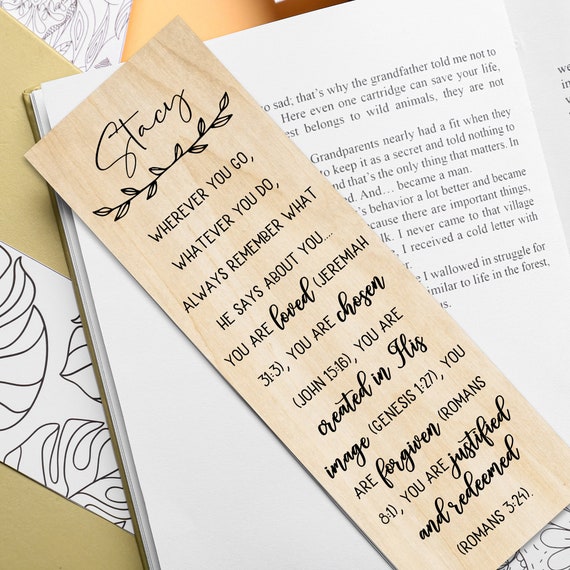 Stacy
WHEREVER YOU GO,
WHATEVER YOU DO,
ALWAYS REMEMBER WHAT
HE SAYS ABOUT YOU....
YOU ARE loved (JEREMIAH
31:3), YOU ARE chosen
(JOHN 15:16), YOU ARE
created in His
image (GENESIS 1:27), YOU
ARE forgiven (ROMANS
8:1), YOU ARE justified
and redeemed
(ROMANS 3:24).
so sad; that's why the grandfather told me not to
Here even one cartridge can save your life,
rest belongs to wild animals, they are not
Grandparents nearly had a fit when they
to keep it as a secret and told nothing to
nd that's the only thing that matters. In
d. And… became a man.
's behavior a lot better and became
because there are important things,
k. I never came to that village
. I received a cold letter with
I wallowed in struggle for
similar to life in the forest,